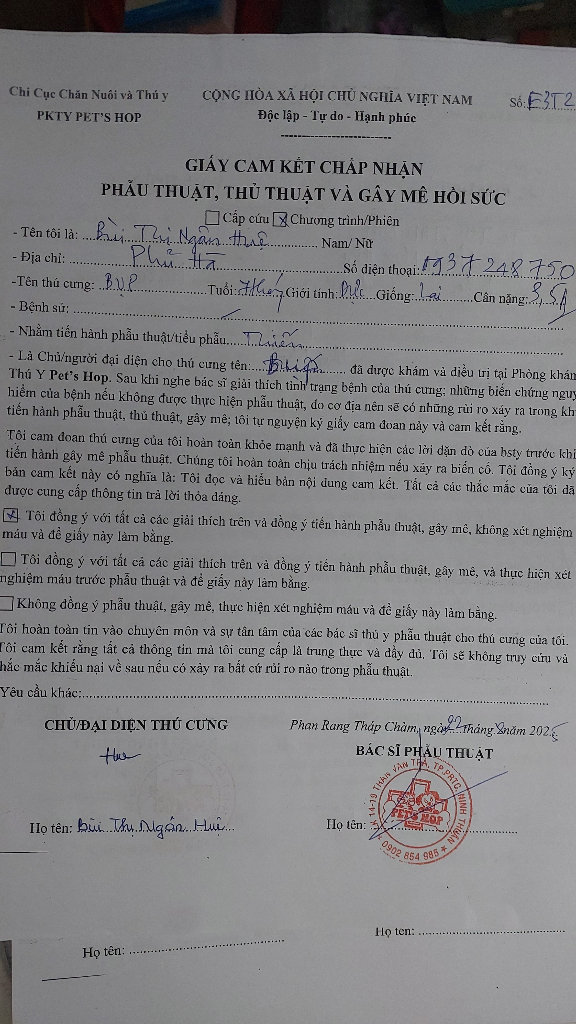 Chi Cục Chăn Nuôi và Thú y
PKTY PET'S HOP
CỘNG HÒA XÃ HỘI CHỦ NGHĨA VIỆT NAM
Độc lập - Tự do - Hạnh phúc
Số: E3T2
GIẤY CAM KẾT CHẤP NHẬN
PHẪU THUẬT, THỦ THUẬT VÀ GÂY MÊ HỒI SỨC
Cấp cứu Chương trình/Phiên
- Tên tôi là: Bùi Thị Ngân Huệ Nam/ Nữ
- Địa chỉ: Phủ Hà Số điện thoại: 0937248750
-Tên thú cưng: BUP Tuổi: 7 tháng Giới tính: Đực Giống: Lai Cân nặng: 3,5
- Bệnh sử:
- Nhằm tiến hành phẫu thuật/tiểu phẫu Thiến
- Là Chủ/người đại diện cho thú cưng tên: đã được khám và điều trị tại Phòng khám
Thú Y Pet's Hop. Sau khi nghe bác sĩ giải thích tình trạng bệnh của thú cưng; những biến chứng nguy
hiểm của bệnh nếu không được thực hiện phẫu thuật, do cơ địa nên sẽ có những rủi ro xảy ra trong kh
tiến hành phẫu thuật, thủ thuật, gây mê; tôi tự nguyện ký giấy cam đoan này và cam kết rằng.
Tôi cam đoan thú cưng của tôi hoàn toàn khỏe mạnh và đã thực hiện các lời dặn dò của bsty trước khi
tiến hành gây mê phẫu thuật. Chúng tôi hoàn toàn chịu trách nhiệm nếu xảy ra biến cố. Tôi đồng ý ký
bản cam kết này có nghĩa là: Tôi đọc và hiểu bản nội dung cam kết. Tất cả các thắc mắc của tôi đã
được cung cấp thông tin trả lời thỏa đáng.
Tôi đồng ý với tất cả các giải thích trên và đồng ý tiến hành phẫu thuật, gây mê, không xét nghiệm
máu và để giấy này làm bằng.
Tôi đồng ý với tất cả các giải thích trên và đồng ý tiến hành phẫu thuật, gây mê, và thực hiện xét
nghiệm máu trước phẫu thuật và để giấy này làm bằng.
Không đồng ý phẫu thuật, gây mê, thực hiện xét nghiệm máu và để giấy này làm bằng.
Tôi hoàn toàn tin vào chuyên môn và sự tận tâm của các bác sĩ thú y phẫu thuật cho thú cưng của tôi.
Tôi cam kết rằng tất cả thông tin mà tôi cung cấp là trung thực và đầy đủ. Tôi sẽ không truy cứu và
hắc mắc khiếu nại về sau nếu có xảy ra bất cứ rủi ro nào trong phẫu thuật.
Yêu cầu khác:
CHỦ/ĐẠI DIỆN THÚ CƯNG
Phan Rang Tháp Chàm, ngày 22 tháng 8 năm 2025
BÁC SĨ PHẪU THUẬT
Huệ
K 14-19 TRẦN VĂN TRÀ, TP.PRTC, NINH THUẬN
PET'S HOP
0902 854 985
Họ tên: Bùi Thị Ngân Huệ
Họ tên:
Họ tên:
Họ tên: